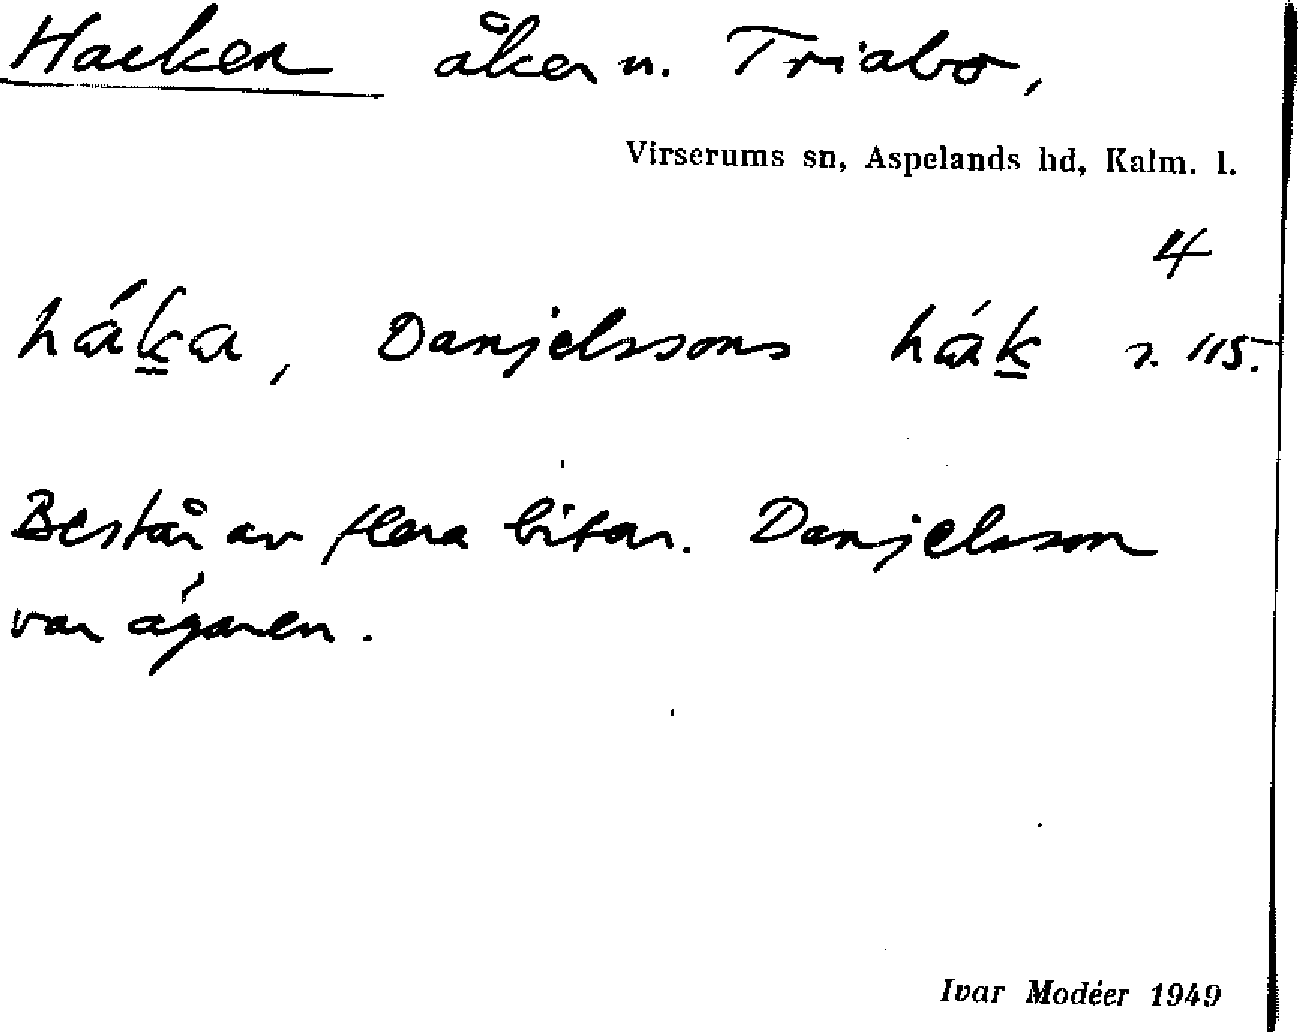 Hacken åker n. Triabo,
Virserums sn, Aspelands hd, Kalm. l.
4
háka, Danjelssons hák 2. 115.
Består av flera bitar. Danjelsson
var ägaren.
Ivar Modéer 1949